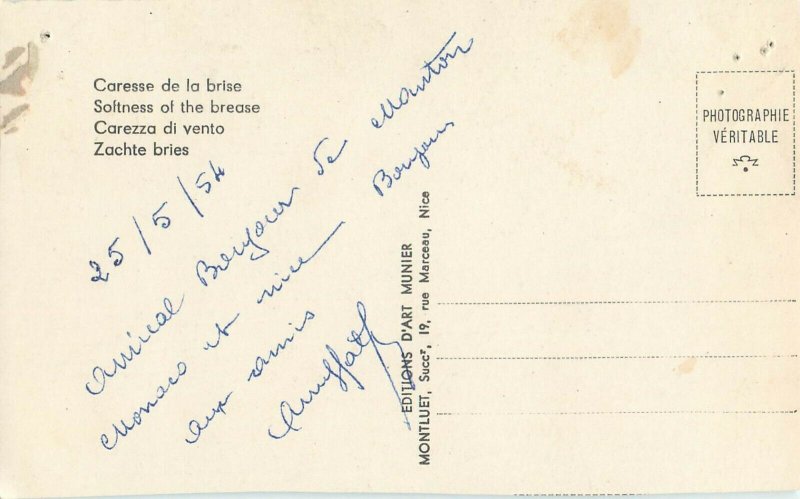 Caresse de la brise
Softness of the brease
Carezza di vento
Zachte bries
PHOTOGRAPHIE
VÉRITABLE
25/5/54
Amical Bonjour de Menton
Monaco et nice Bonjour
aux amis
EDITIONS D'ART MUNIER
MONTLUET, Succʳ, 19, rue Marceau, Nice